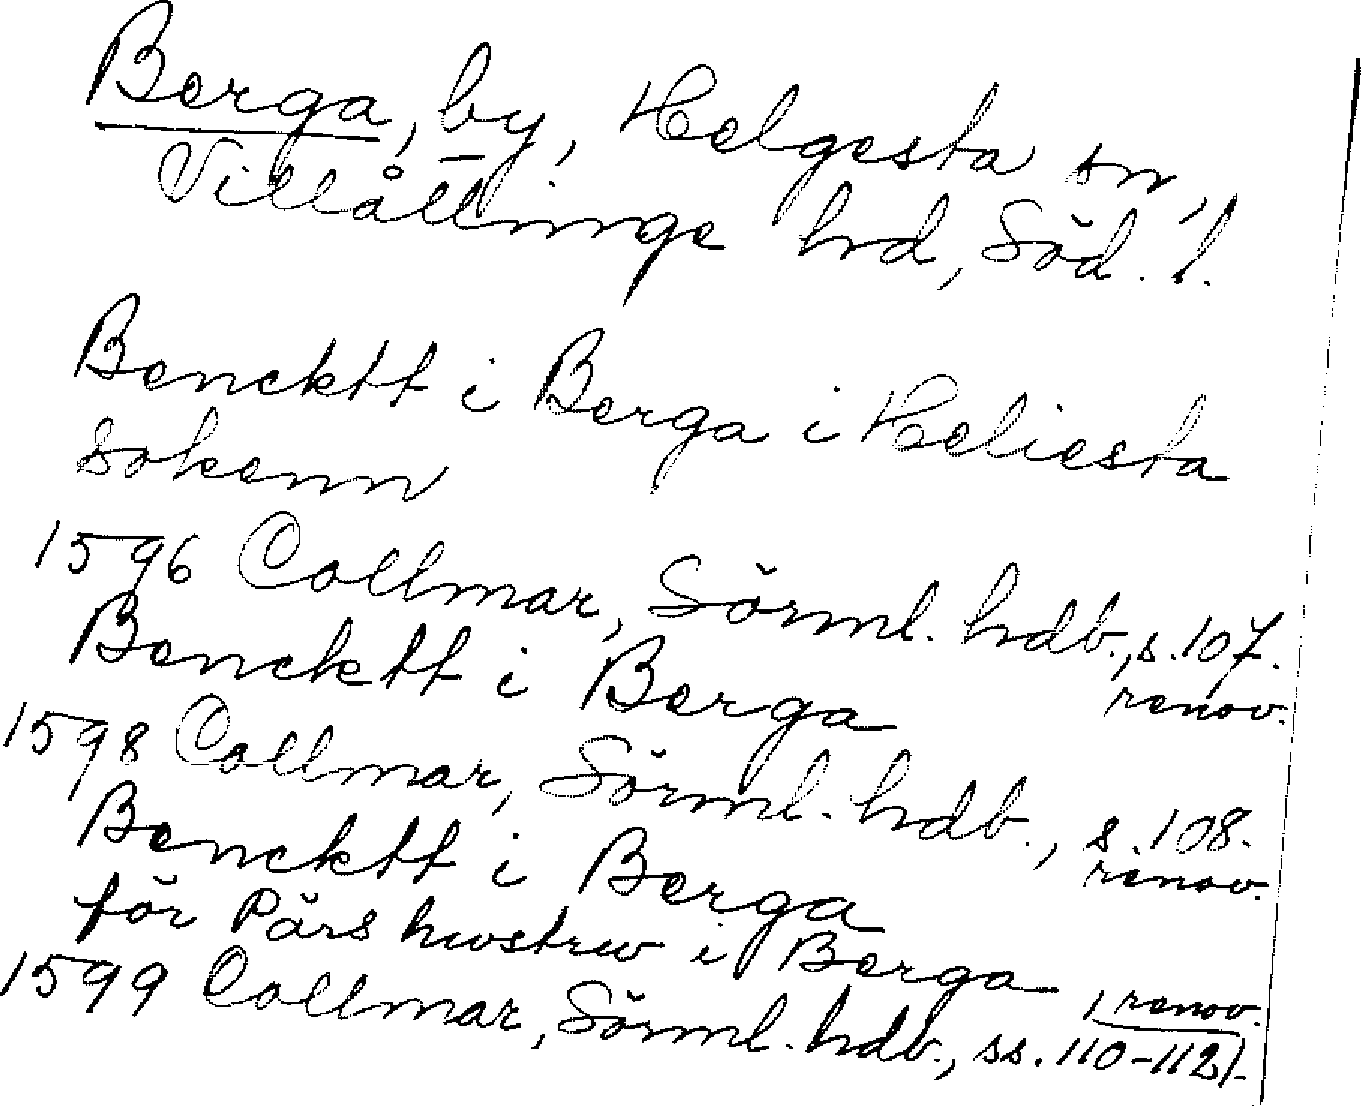 Berga, by, Helgesta sn,
Villåttinge hrd, Söd. l.
Bencktt i Berga i Heliesta
sokenn
1596 Collmar, Sörml. hrdb., s. 107.
renov.
Bencktt i Berga
1598 Collmar, Sörml. hrdb., s. 108.
renov.
Bencktt i Berga
för Pärs hwstrw i Berga
1599 Collmar, Sörml. hdb., ss. 110-112).
renov.